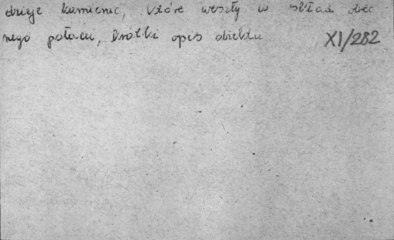 dzieje kamienic, które weszły w skład obec
nego pałacu, Krótki opis obiektu XI/282